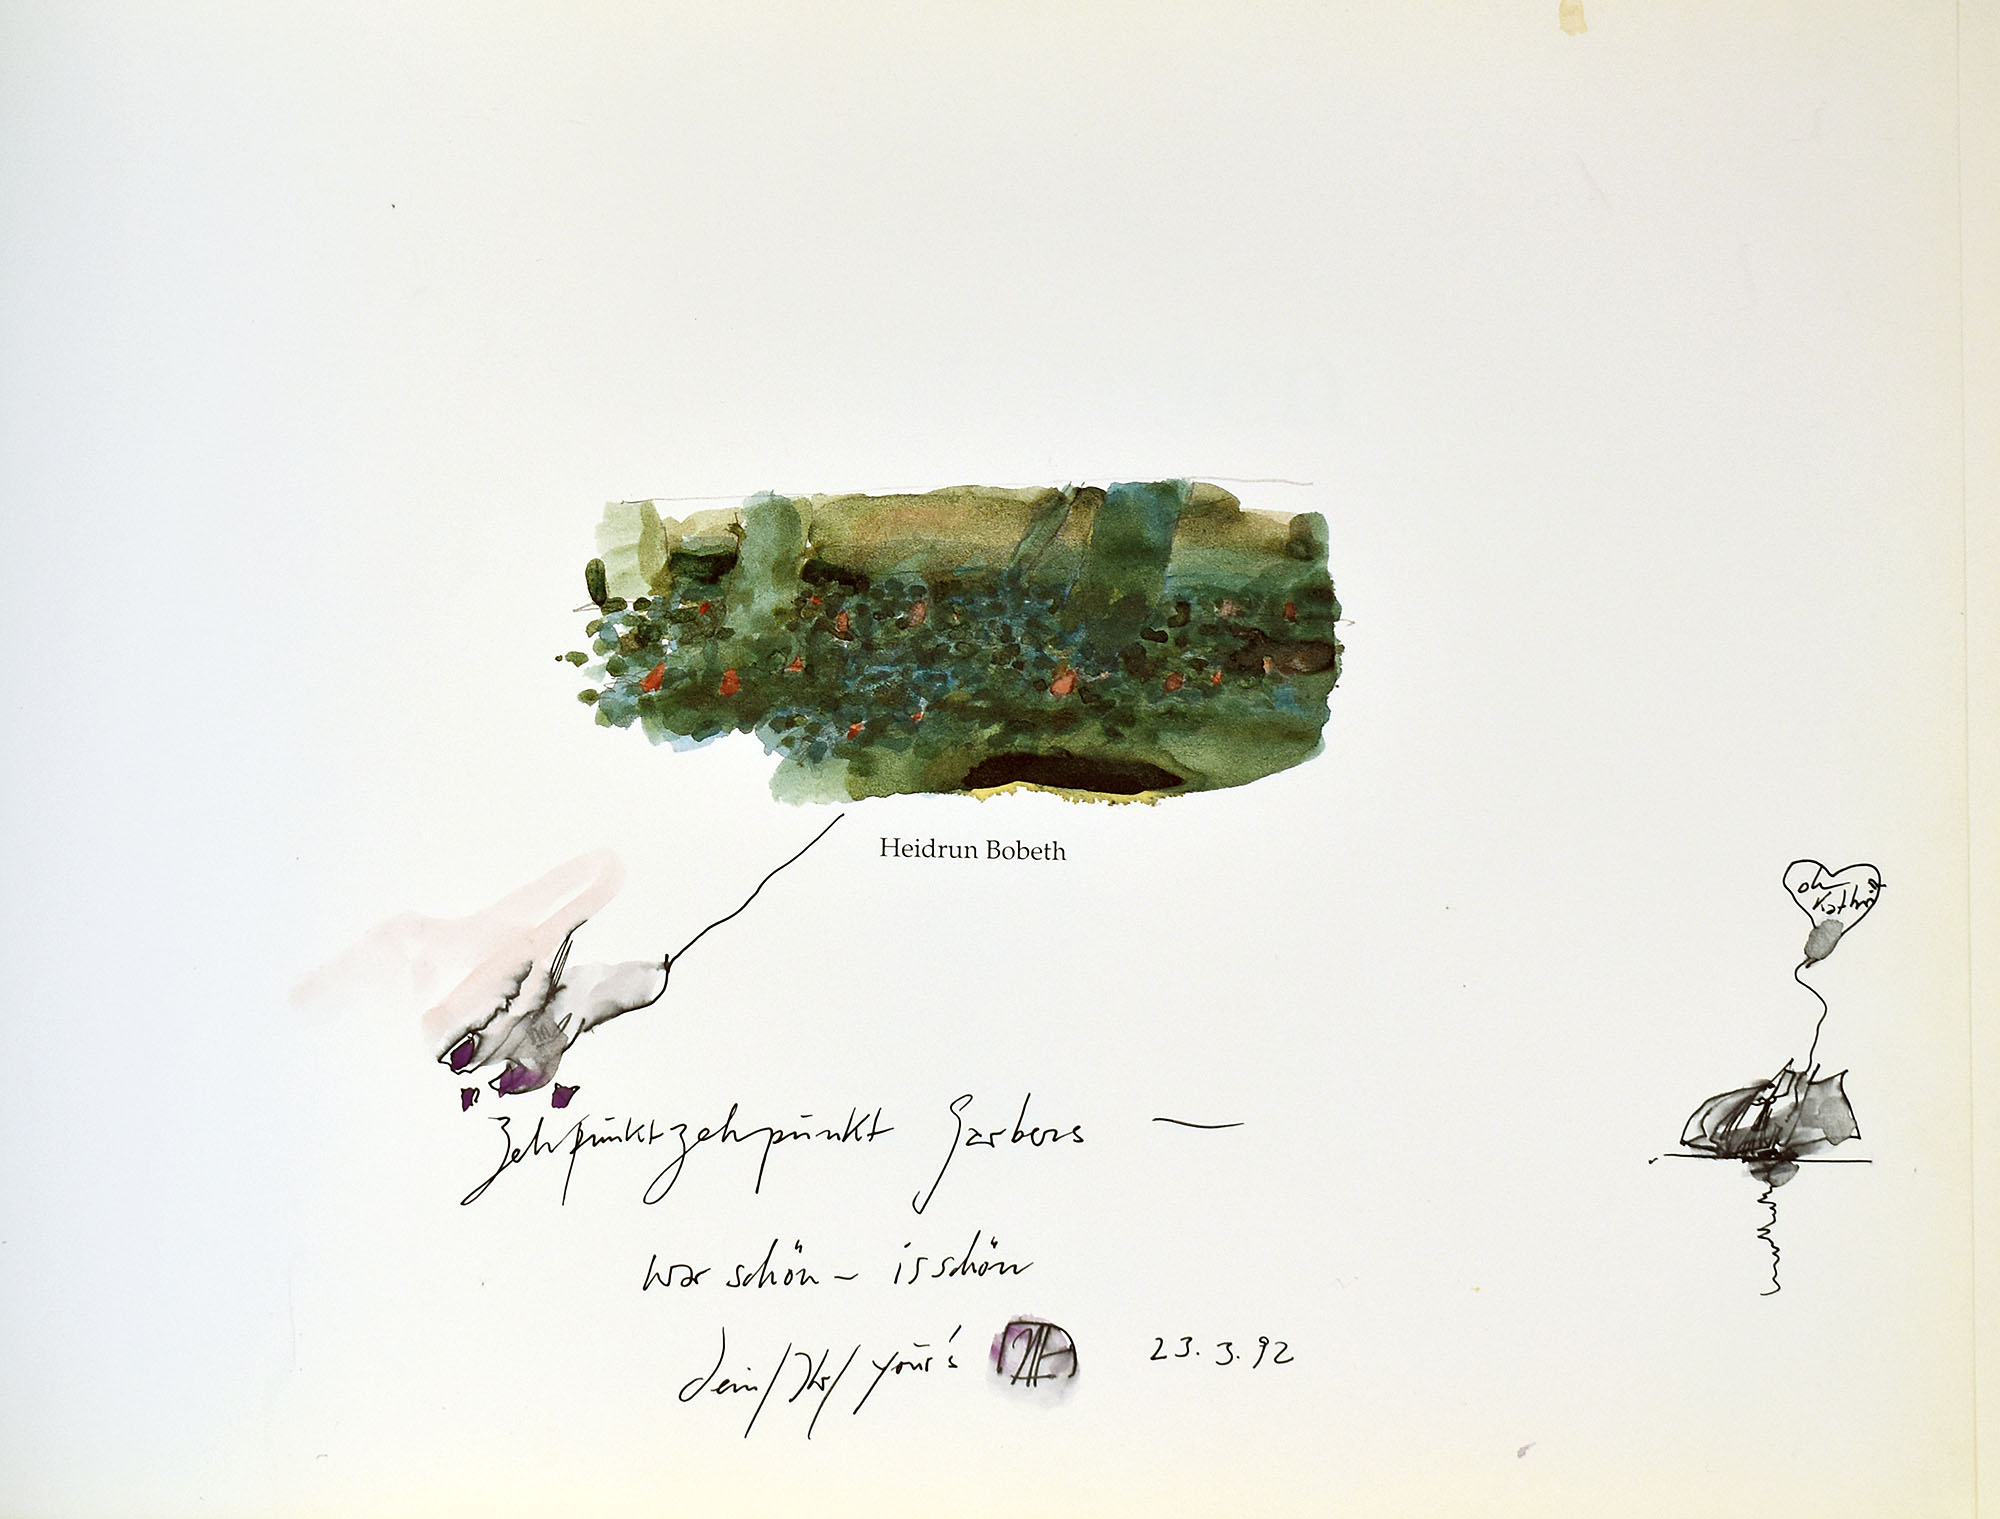 Heidrun Bobeth
oh
Kathrin
Zehpunktzehpunkt Garbers —
war schön – is schön
dein/Ihr/your's
23.3.92